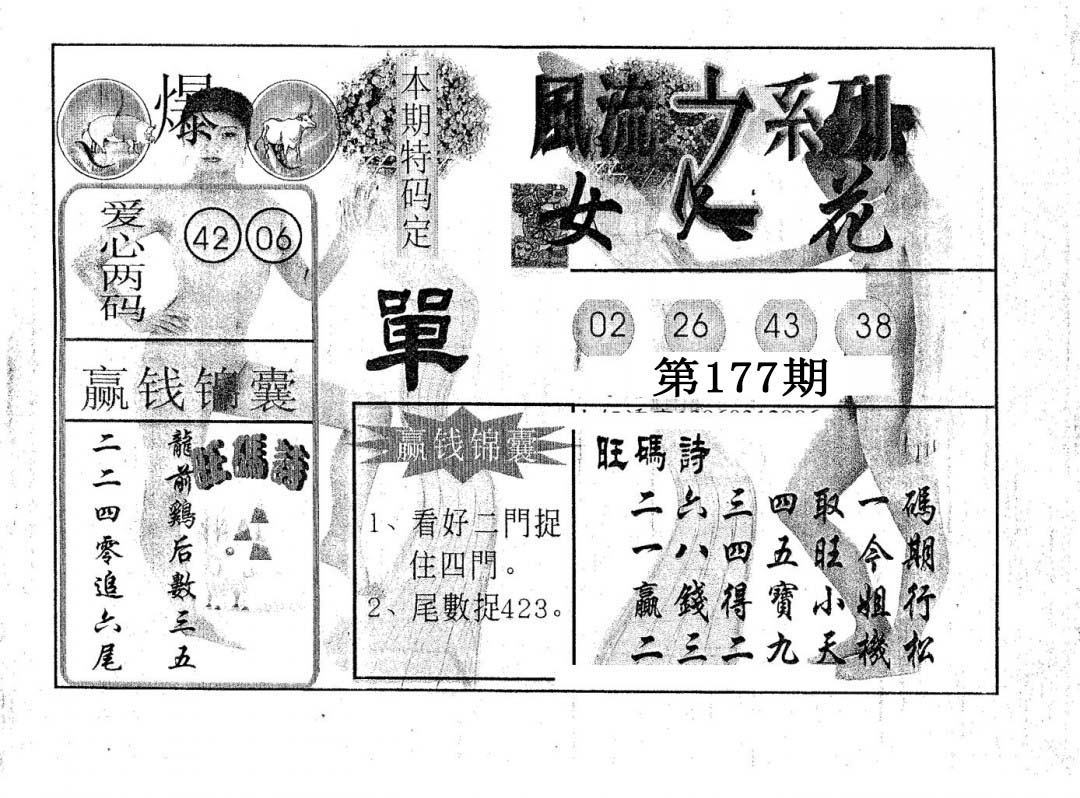 爆
本期特码定
單
風流之系列
女人花
爱心两码
42 06
02 26 43 38
第177期
赢钱锦囊
旺碼詩
龍前鷄后數三五
二二四零追六尾
赢钱锦囊
1、看好二門捉
住四門。
2、尾數捉423。
旺碼詩
二六三四取一碼
一八四五旺今期
贏錢得寶小姐行
二三二九天機松